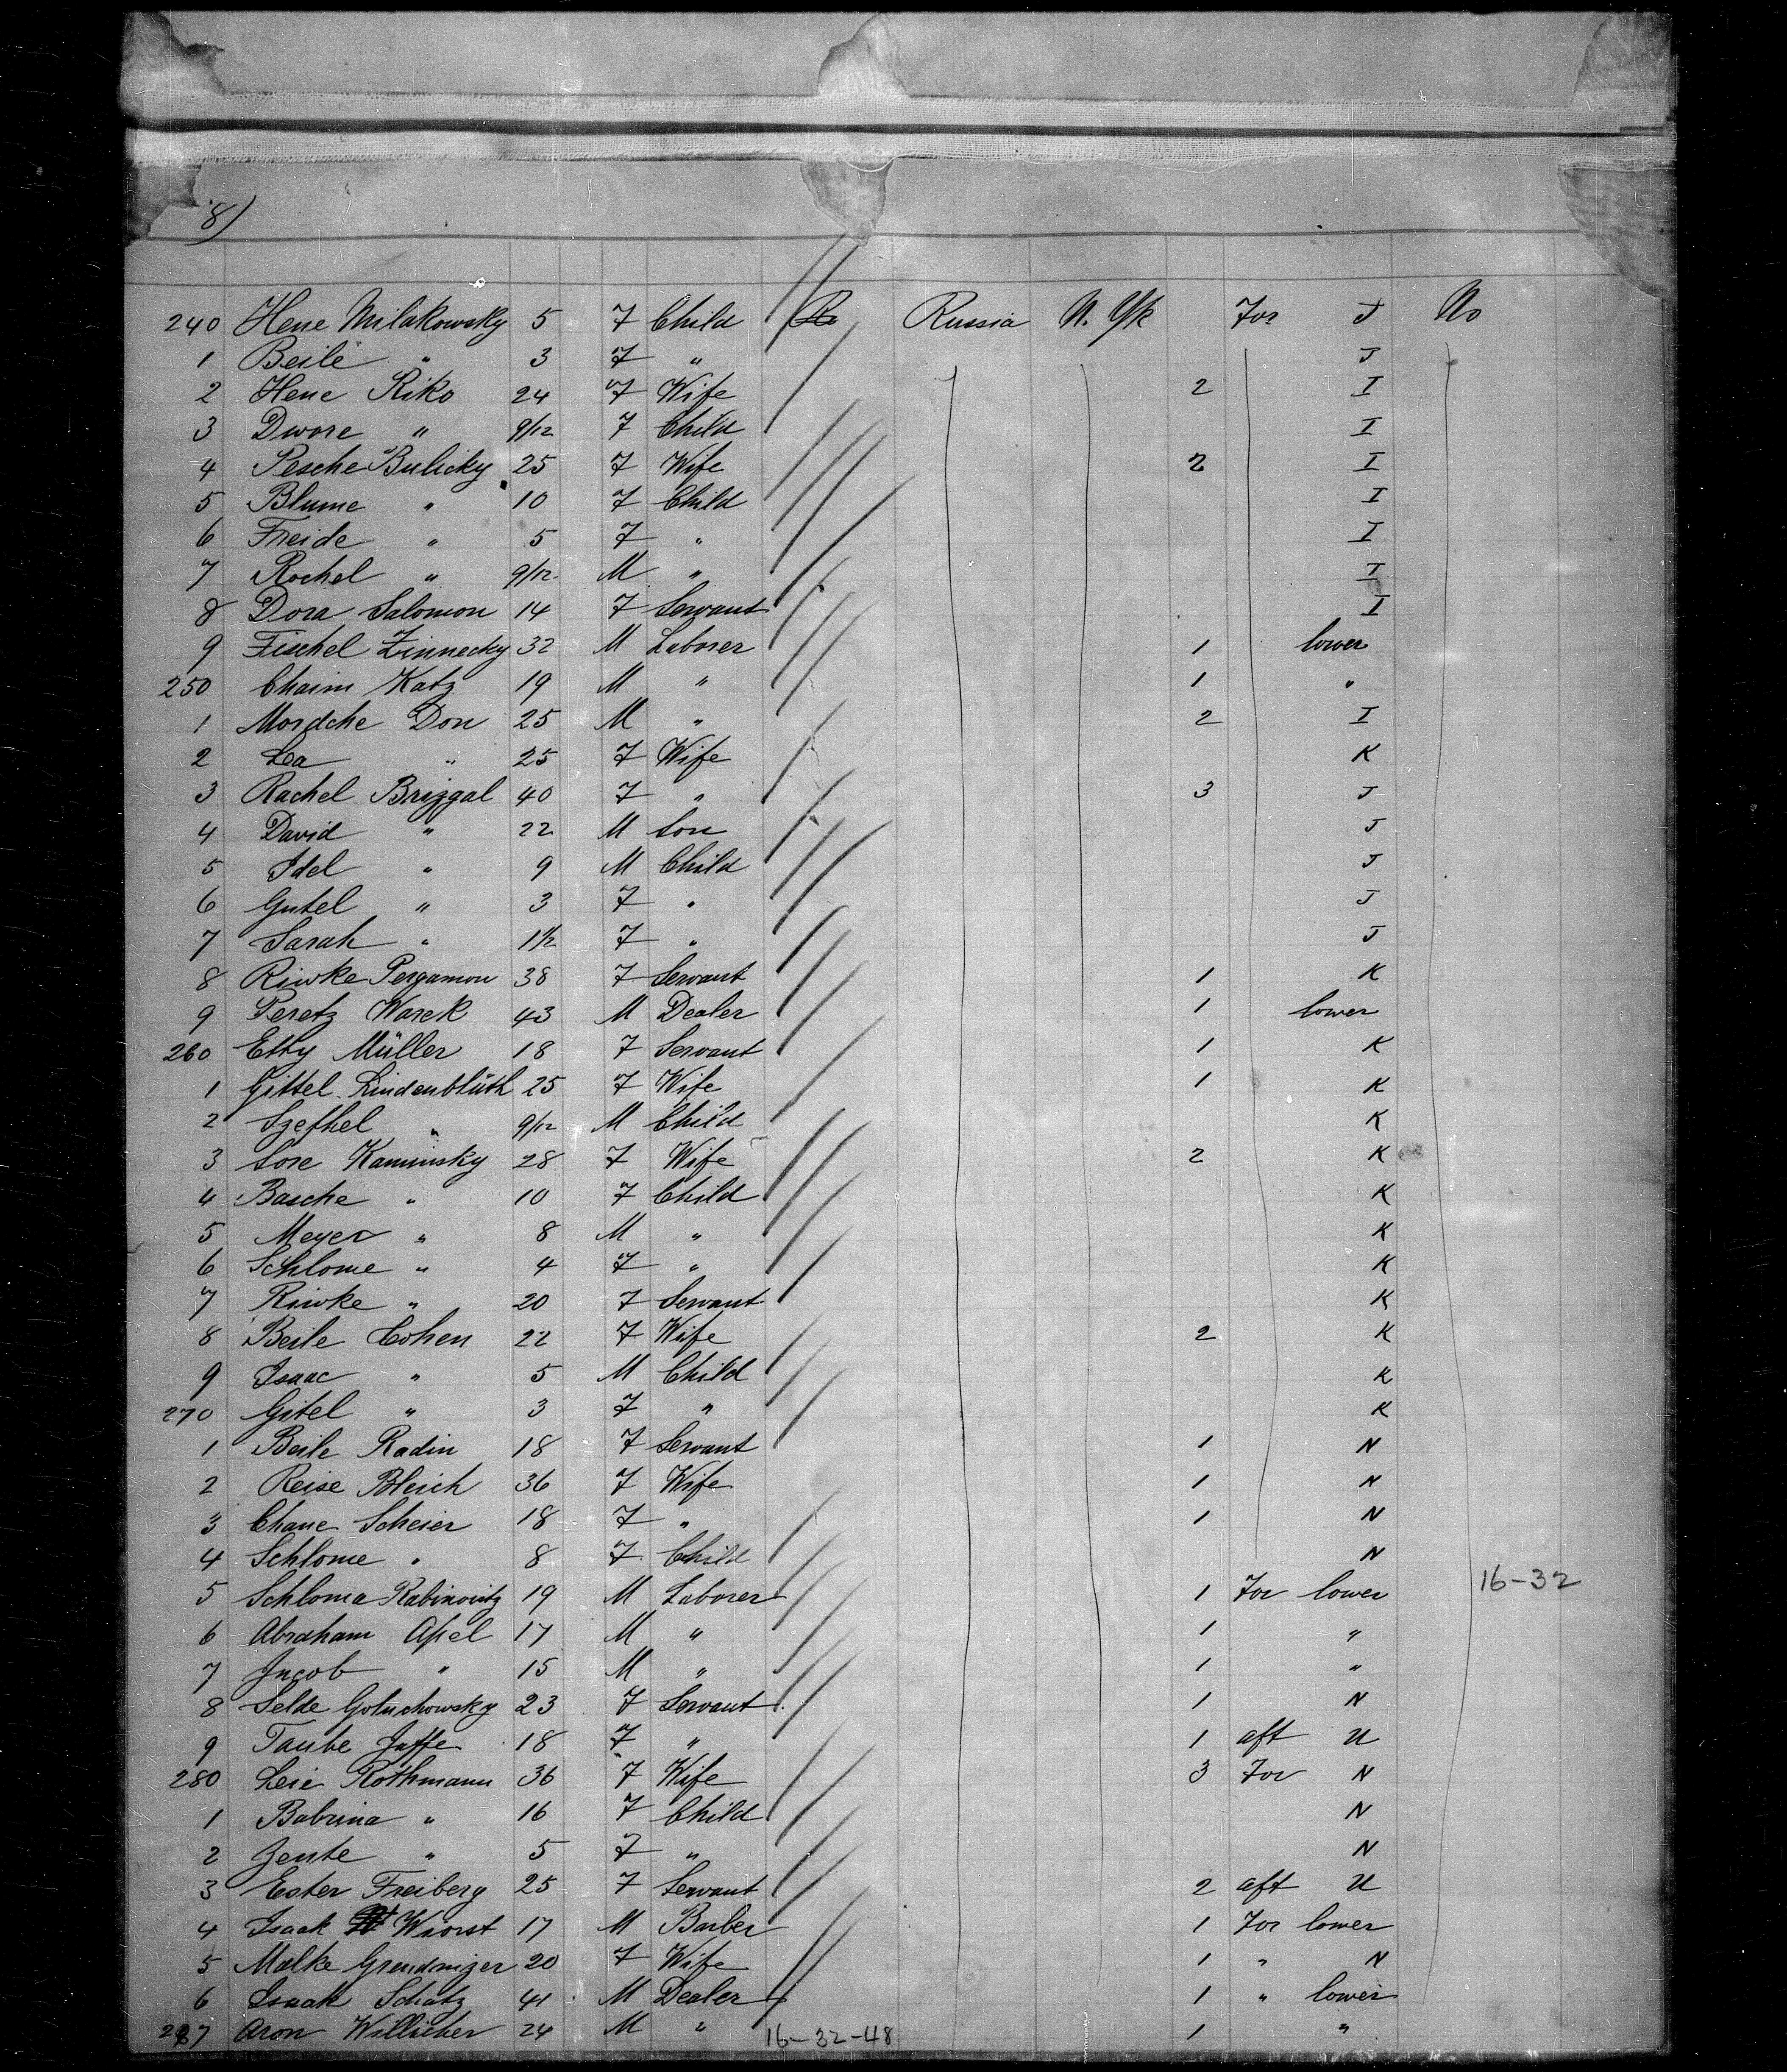 8)
240 Hene Milakowsky 5 F Child Russia N. Yk For J No
1 Beile " 3 F " J
2 Hene Riko 24 F Wife 2 I
3 Dwore " 9/12 F Child I
4 Pesche Bulicky 25 F Wife 2 I
5 Blume " 10 F Child I
6 Freide " 5 F " I
7 Rochel " 9/12 M " I
8 Dora Salomon 14 F Servant I
9 Fischel Zinnecky 32 M Laborer 1 lower
250 Chaim Katz 19 M " 1 "
1 Mordche Don 25 M " 2 I
2 Lea " 25 F Wife K
3 Rachel Brizgal 40 F " 3 J
4 David " 22 M Son J
5 Idel " 9 M Child J
6 Gutel " 3 F " J
7 Sarah " 1 1/2 F " J
8 Riwke Pergamon 38 F Servant 1 K
9 Peretz Warek 43 M Dealer 1 lower
260 Etty Müller 18 F Servant 1 K
1 Gittel Lindenblüth 25 F Wife 1 K
2 Szefhel " 9/12 M Child K
3 Sore Kaminsky 28 F Wife 2 K
4 Basche " 10 F Child K
5 Meyer " 8 M " K
6 Schlome " 4 F " K
7 Riwke " 20 F Servant K
8 Beile Cohen 22 F Wife 2 K
9 Isaac " 5 M Child K
270 Gitel " 3 F " K
1 Beile Radin 18 F Servant 1 N
2 Reise Bleich 36 F Wife 1 N
3 Chane Scheier 18 F " 1 N
4 Schlome " 8 F Child N
5 Schloma Rabinovitz 19 M Laborer 1 For lower 16-32
6 Abraham Apel 17 M " 1 "
7 Jacob " 15 M " 1 "
8 Selde Goluchowsky 23 F Servant 1 N
9 Taube Jaffe 18 F " 1 aft U
280 Leie Rothmann 36 F Wife 3 For N
1 Babrina " 16 F Child N
2 Zente " 5 F " N
3 Ester Freiberg 25 F Servant 2 aft U
4 Isaak Wiorst 17 M Barber 1 For lower
5 Malke Grendzniger 20 F Wife 1 " N
6 Isaak Schatz 41 M Dealer 1 " lower
287 Aron Willicher 24 M " 16-32-48 1 "